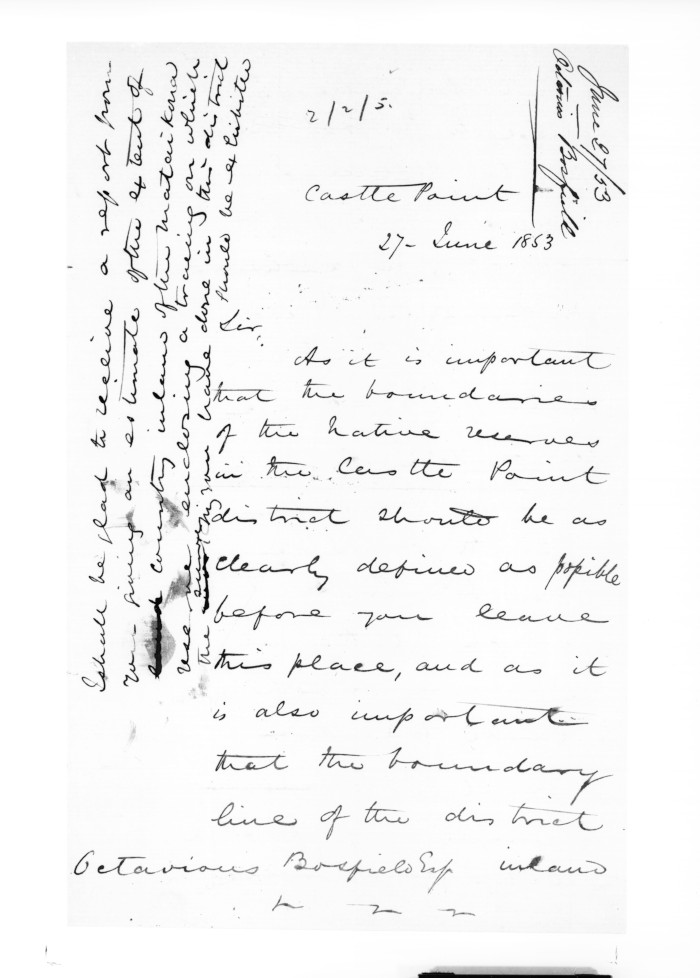 June 27/53
Octavius Bosfield
2/2/5.
Castle Point
27- June 1853
Sir,
As it is important
that the boundaries
of the Native reserves
in the Castle Point
district should be as
clearly defined as possible
before you leave
this place, and as it
is also important
that the boundary
line of the district
Octavious Bosfield Esq inland
I shall be glad to receive a report from
you giving an estimate of the extent of
country inland of the Mataikona
reserve enclosing a tracing on which
the survey you have done in this district
should be exhibited